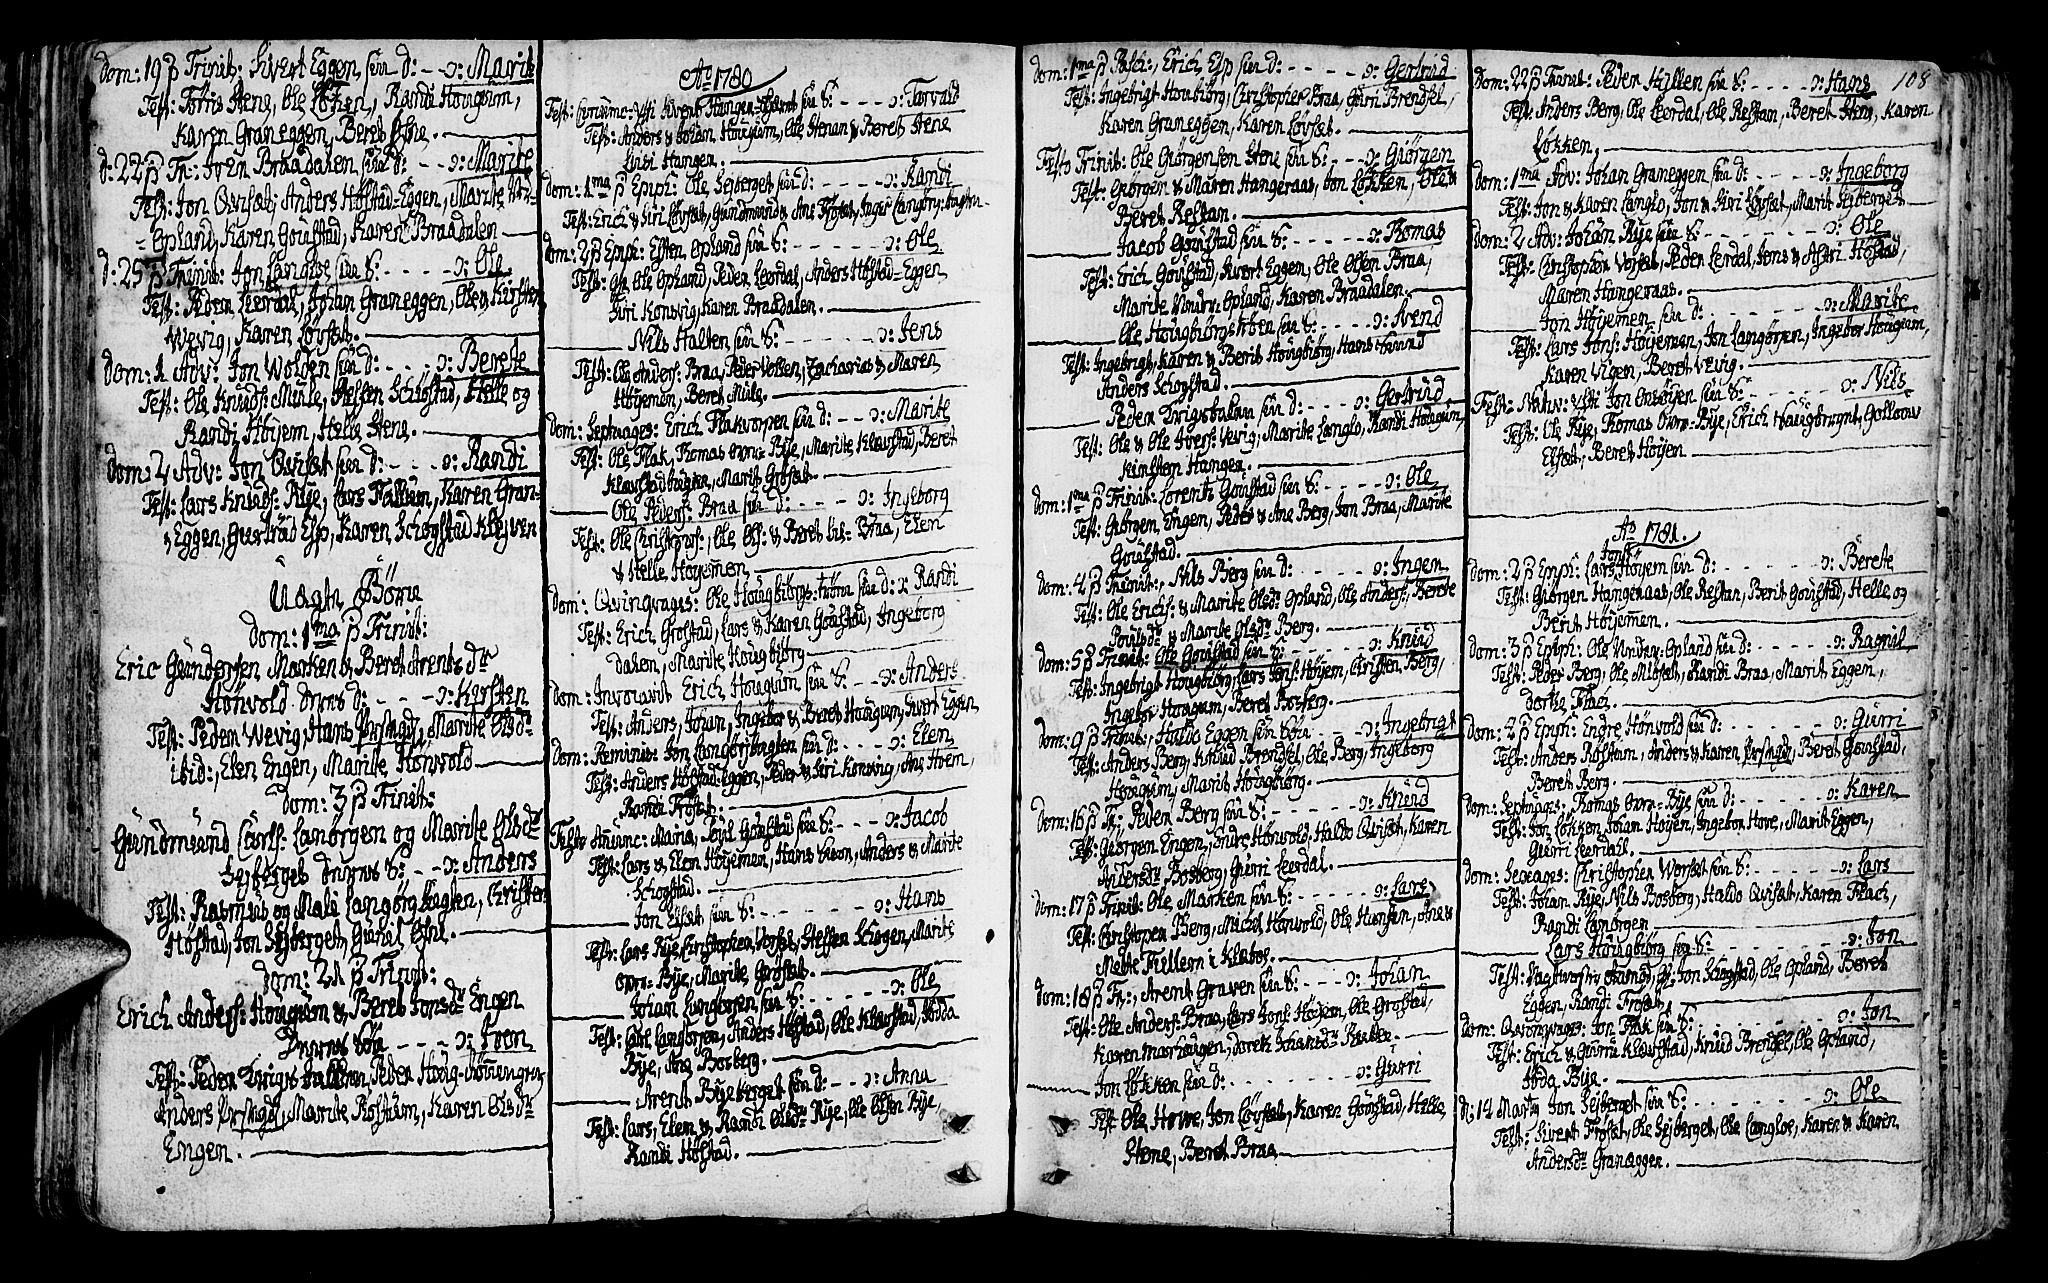 dom: 19 p Trinit: Sivert Eggen sin d: - - ɔ: Marit
Test: Tørris Stene, Ole Løkken, Randi Hougum,
Karen Graneggen, Beret Stene.
d: 22 p Tr: Iven Braadalen sin d: - - ɔ: Marite
Test: Jon Qvisat, Anders Høstad-Eggen, Marite
Opland, Karen Goustad, Karen Braadalen
d: 25 p Trinit: Jon Langloe sin S: - - - - ɔ: Ole
Test: Peder Leerdal, Johan Graneggen, Ole & Kirsten
Wevig, Karen Løfset.
dom: 1 Adv: Jon Wolden sin d: - - ɔ: Berete
Test: Ole Knuds: Mule, Steffen Schogstad, Helle og
Randi Høyem, Helle Stene.
dom: 2 Adv: Jon Qvisat sin d: - - - ɔ: Randi
Test: Lars Knuds: Rye, Lars Hallum, Karen Gran-
Eggen, Gurtrud Esp, Karen Schogstad Kleiven
Uægte Børn
dom: 1ma p Trinit:
Eric Gundersen Marken & Beret Arents dtr
Hønvold Deres d: - - - ɔ: Kirsten
Test: Peder Wevig, Hans , Marite Olsdr
ibid:, Elen Engen, Marite Hønvold
dom: 3 p Trinit:
Gundmund Larss: Langørgen og Marite Olsdr
Sejberget Deres S: - - ɔ: Anders
Test: Rasmus og Mali Langørg hagten, Christen
Høstad, Jon Sejberget, Gunel Stene.
dom: 21 p Trinit:
Erich Anders: Hougum & Beret Jonsdr Engen
Deres Søn - - - - ɔ: Iven
Test: Peder , Peder Houg-
Anders , Marite Rostum, Karen Olsdr
Engen.
Ao 1780
Fest: Circumc: Sivert Hangen sin S: - - - - ɔ: Torvald
Test: Anders & Johan Hougum, Ole Stenan & Beret Stene
Siri Hangen.
dom: 1ma p Epiph: Ole Sejberget sin d: - - - - ɔ: Randi
Test: Erich & Siri Løvset, Gundmund & Ane Frøset, Inger Langørg:
dom: 2 p Epiph: Esten Opland sin S: - - - - - ɔ: Ole
Test: Ole Opland, Peder Leerdal, Anders Høstad-Eggen
Siri Konsvig, Karen Braadalen.
Nils Halten sin S: - - - - - - ɔ: Jens
Test: Ole Anders: Braa, Peder Volden, Zacharias & Maren
Høyemon, Beret Mule.
dom: Septuages: Erich Flakvorpen sin d: - - ɔ: Marite
Test: Ole Flak, Thomas Øvre-Rye, Marite Klevstad, Beret
Klevstadbakken, Marit Grøset.
Ole Peders: Braa sin d: - - - - ɔ: Ingeborg
Test: Ole Christophers:, Ole Ols: & Beret Braa, Elen
& Helle Høyemon.
dom: Qvinqvages: Ole Hougbiørgstrøen sin d: ɔ: Randi
Test: Erich Grostad, Lars & Karen Goustad, Ingeborg
Dalen, Marite Hougbiørg
dom: Invocavit Erich Hougum sin S: - - ɔ: Anders
Test: Anders, Johan, Ingebor & Beret Hougum, Sivert Eggen
dom: Reminis: Jon Langørshagten sin d: - - - ɔ: Elen
Test: Anders Høstad-Eggen, Peder & Siri Konsvig, Ane Hoem,
Randi Frøset.
Festo Anunc: Maria, Poul Goustad sin S: - - - ɔ: Jacob
Test: Lars & Elen Høyemon, Hans Moen, Anders & Marite
Schogstad.
Jon Elset sin S: - - - - - - - ɔ: Hans
Test: Lars Rye, Christopher Vorset, Steffen Schogen, Marite
Øvre-Rye, Marite Grøset.
Johan Langørgen sin S: - - - - - - ɔ: Ole
Test: Carl Langørgen, Anders Høstad, Ole Klevstad, Goda
Rye, Ane Bosberg.
Arent Rye berget sin d: - - - ɔ: Anna
Test: Lars, Elen & Randi Olsdr Rye, Ole Olsen Rye,
Randi Høstad.
dom: 1ma p Pasch:, Erich Esp sin d: - - - - - ɔ: Gertrud
Test: Ingebrigt Houbiørg, Christopher Braa, Gurri Brendsel,
Karen Graneggen, Karen Løvset.
Festo Trinit: Ole Giørgensen Stene sin S: - - - ɔ: Giørgen
Test: Giørgen & Maren Hangeraas, Jon Løkken, Ole &
Beret Restan.
Jacob Goustad sin S: - - - - - ɔ: Thomas
Test: Erich Goustad, Sivert Eggen, Ole Olsen Braa,
Marite Opland, Karen Braadalen.
Ole Hougbiørgstrøen sin S: - - - - - ɔ: Svend
Test: Ingebrigt, Karen & Berit Hougbiørg, Hans Svend
Anders Schogstad.
Peder sin d: - - - - - ɔ: Gertrud
Test: Ole & Ole Ivers: Wevig, Marite Langlo, Randi Hougum,
Kirsten Hangen.
dom: 1ma p Trinit: Lorentz Goustad sin S: - - - - ɔ: Ole
Test: Giørgen Engen, Peder & Ane Berg, Jon Braa, Marite
Goustad.
dom: 4 p Trinit:, Nils Berg sin d: - - - - - ɔ: Ingem
Test: Ole Erichs: & Marite Olsdr Opland, Ole Anders:, Berete
Poulsdr & Marite Olsdr Berg.
dom: 5 p Trinit: Ole Goustad sin S: - - - - - ɔ: Knud
Test: Ingebrigt Hougbiørg, Lars Jons: Høyem, Christen Berg,
Ingebor Hougum, Beret Bosberg.
dom: 9 p Trinit:, Haldo Eggen sin Søn - - - - ɔ: Ingebrigt
Test: Anders Berg, Knud Brendsel, Ole Berg, Ingeborg
Hougum, Marit Hougbiørg.
dom: 16 p Tr:, Peder Berg sin S: - - - - - ɔ: Knud
Test: Giørgen Engen, Endre Hønvold, Haldo Qvisat, Karen
Andersdr Bosberg, Gurri Leerdal.
dom: 17 p Trinit: Ole Marken sin S: - - - - ɔ: Lars
Test: Christopen Berg, Michel Hønvold, Ole Hansen, Ane &
Mette Tiellern i Klæboe.
dom: 18 p Tr:, Arent Graven sin S: - - - ɔ: Johan
Test: Ole Anders: Braa, Lars Jons: Høyem, Ole Grostad,
Karen Marhougen, Doreth Schansdr
Jon Løkken sin d: - - - - - - - ɔ: Gurri
Test: Ole Howe, Jon Løvset, Karen Goustad, Helle
Stene, Beret Braa
108
dom: 22 p Trinit: Peder Hyllen sin S: - - - - - ɔ: Hans
Test: Anders Berg, Ole Leerdal, Ole Restan, Beret Steng, Karen
Løkken.
dom: 1ma Adv: Johan Graneggen sin d: - - - - - ɔ: Ingeborg
Test: Jon & Karen Langlo, Jon & Siri Løvset, Marit Sejberget
dom: 2 Adv: Johan Rye sin S: - - - - - - ɔ: Ole
Test: Christopher Vorset, Peder Lerdal, Jens & Aseri Høstad,
Maren Hangeraas.
Jon Høyemen sin d: - - - - - - - - ɔ: Marite
Test: Lars Jons: Høyemen, Jon Langørgen, Ingebor Hougum,
Karen Vigen, Beret Wevig.
Test: Nativ: Jon Øvrøyen sin S: - - - - - - ɔ: Nils
Test: Ole Rye, Thomas Øvre-Rye, Erich Haugbrøgnt, Gollow
Elset, Beret Høyen
Ao 1781.
dom: 2 p Epiph: Lars Jons: Høyem sin d: - - - - - - ɔ: Berete
Test: Giørgen Hangeraas, Ole Restan, Berit Goustad, Helle og
Berit Høyemen.
dom: 3 p Epiph: Ole Opland sin d: - - - - ɔ: Ragnil
Test: Peder Berg, Ole Mosset, Randi Braa, Marit Eggen,
Dorte Flach.
dom: 2 p Epiph: Endre Hønvold sin d: - - - - - ɔ: Gurri
Test: Anders Rostum, Anders & Karen , Beret Goustad,
Beret Berg.
dom: Septuages: Thomas Øvre-Rye sin d: - - - - - ɔ: Karen
Test: Jon Løkken, Johan Høyen, Ingebor Hove, Marit Eggen,
Gurri Leerdal.
dom: Sexages: Christopher Worset sin S: - - - - ɔ: Lars
Test: Johan Rye, Nils Bosberg, Haldo Qvisat, Karen Flach,
Randi Langørgen
Lars Hougbiørg sin S: - - - - - - - ɔ: Jon
Test: , Jon Schogstad, Ole Opland, Beret
Eggen, Randi Frøset.
dom: Qvinqvages: Jon Flak sin S: - - - - - - ɔ: Jon
Test: Erich & Gurru Klevstad, Knud Brendsel, Ole Opland,
Goda Rye.
d: 14 Marty Jon Sejberget sin S: - - - - - - - ɔ: Ole
Test: Sivert Frøset, Ole Sejberget, Ole Langloe, Karen & Karen
Andersdr Graneggen.